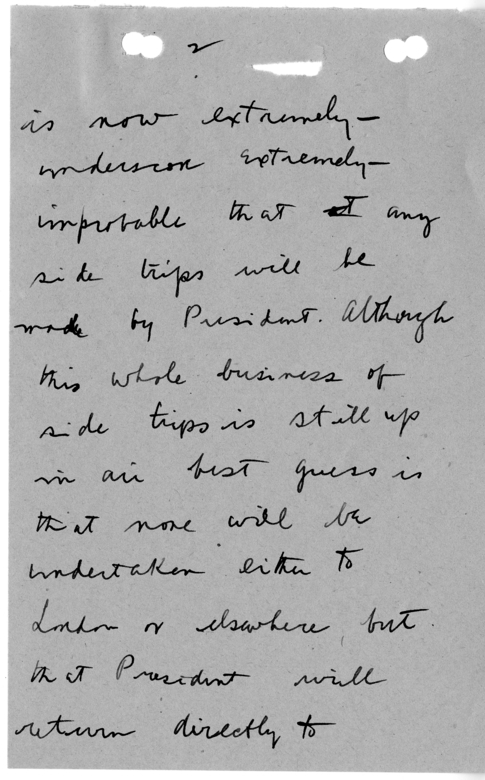 2
is now extremely—
underscore extremely—
improbable that any
side trips will be
made by President. Although
this whole business of
side trips is still up
in air best guess is
that none will be
undertaken either to
London or elsewhere, but
that President will
return directly to